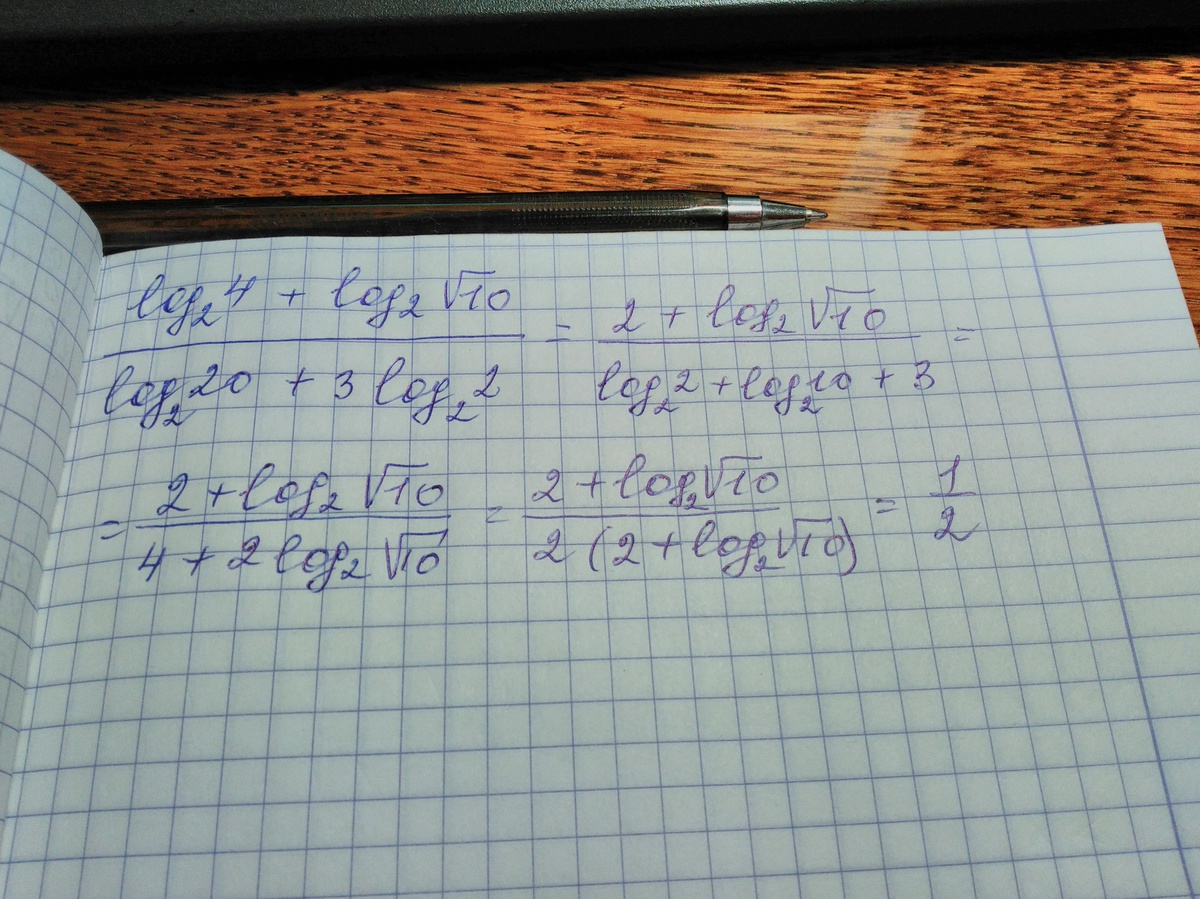 (log₂4 + log₂√10)/(log₂20 + 3 log₂2) = (2 + log₂√10)/(log₂2 + log₂10 + 3) =
= (2 + log₂√10)/(4 + 2 log₂√10) = (2 + log₂√10)/(2 (2 + log₂√10)) = 1/2